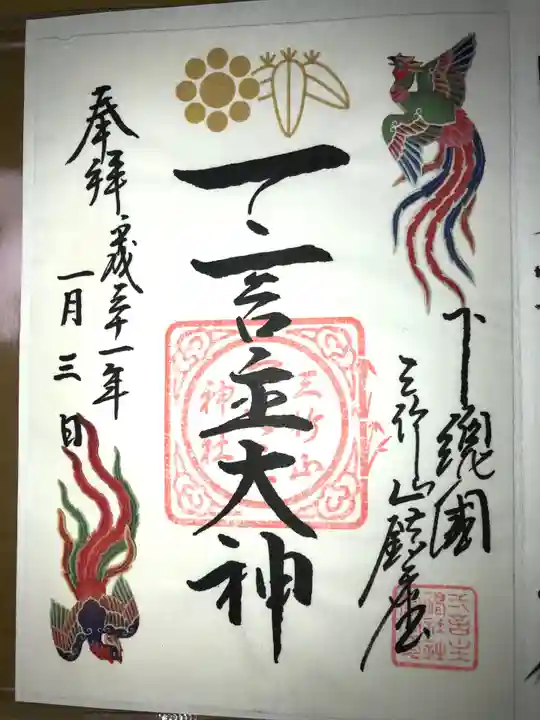 下總國
三竹山鎮座
一言主大神
三竹山
神社
奉拝 平成三十一年
一月三日